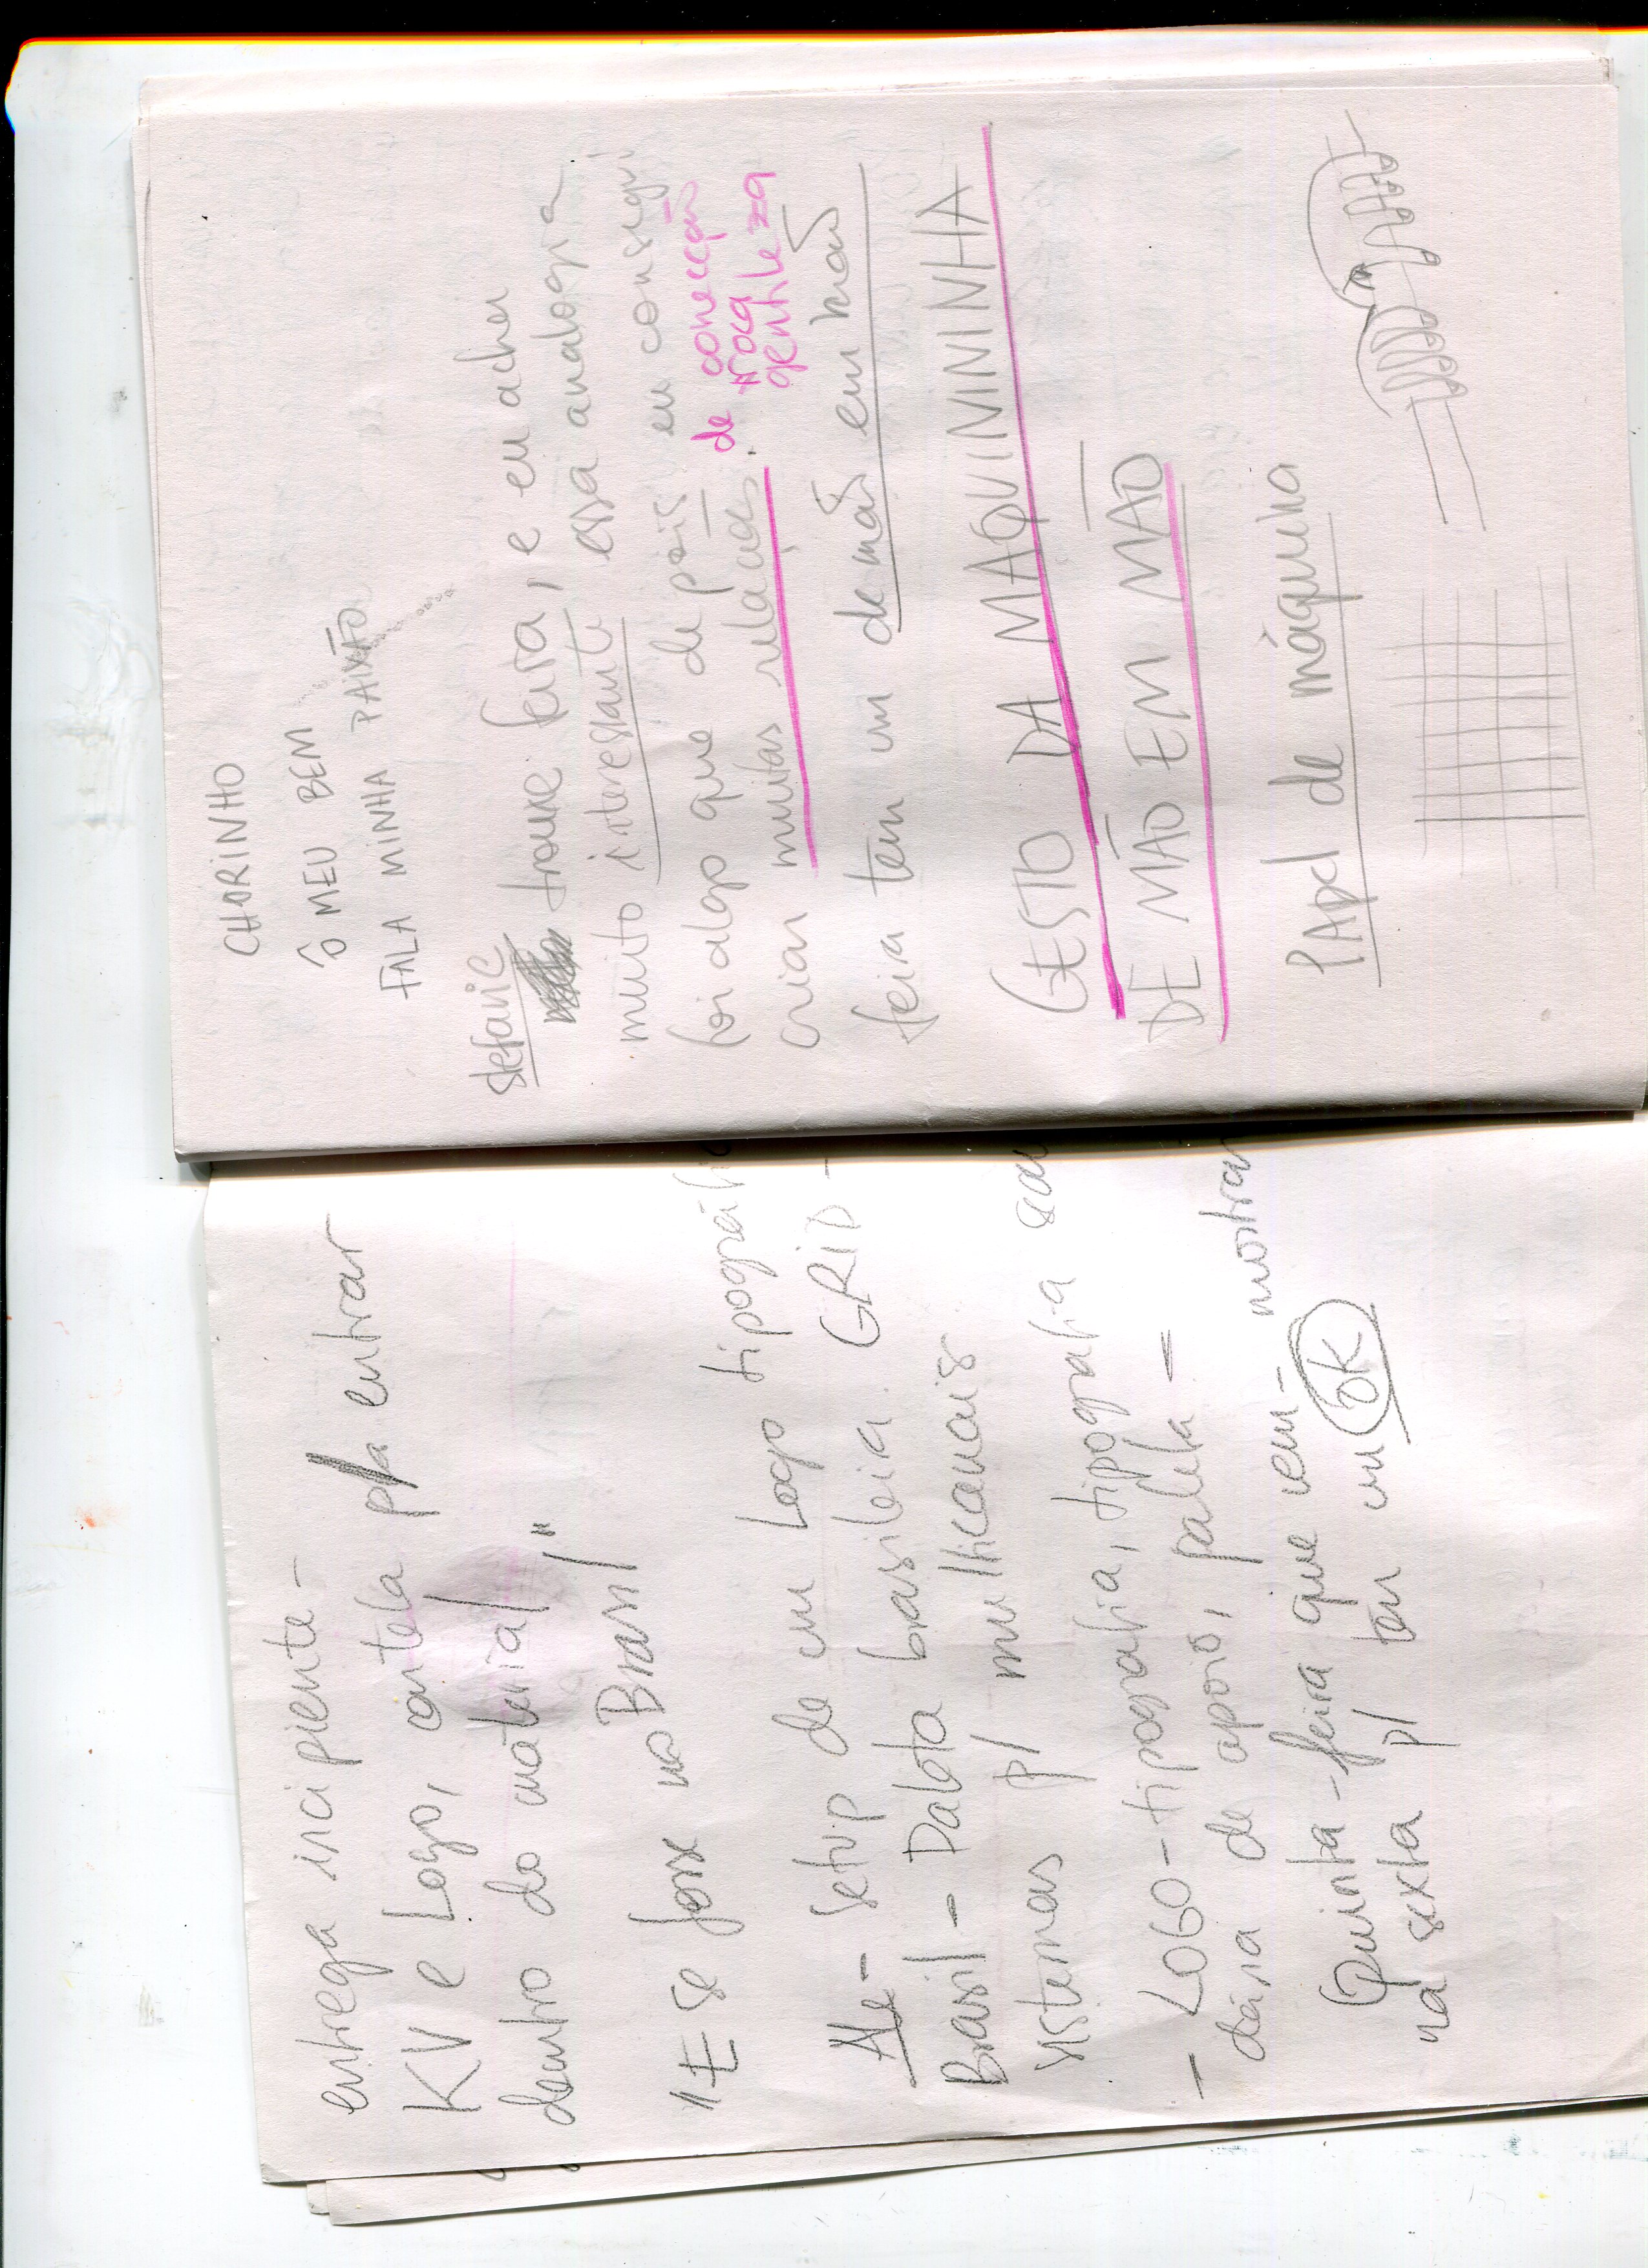 entrega incipiente -
KV e Logo, cartela p/a entrar
dentro do material"
"E se fosse no Brasil
Ale - setup de um Logo tipográfic
Brasil - Palota brasileira GRID -
sistemas p/ multicanais
- LOGO - tipografia, tipografia secun
dária de apoio, paleta =
Quinta-feira que vem - mostrar
na sexta p/ ter um OK
CHORINHO
Ô MEU BEM
FALA MINHA PAIXÃO
stefanie
trouxe feira, e eu achei
muito interessante essa analogia
foi algo que depois eu consegui
criar muitas relações. de conecção
troca
gentileza
feira tem um de mão em mão
GESTO DA MAQUININHA
DE MÃO EM MÃO
PApel de máquina